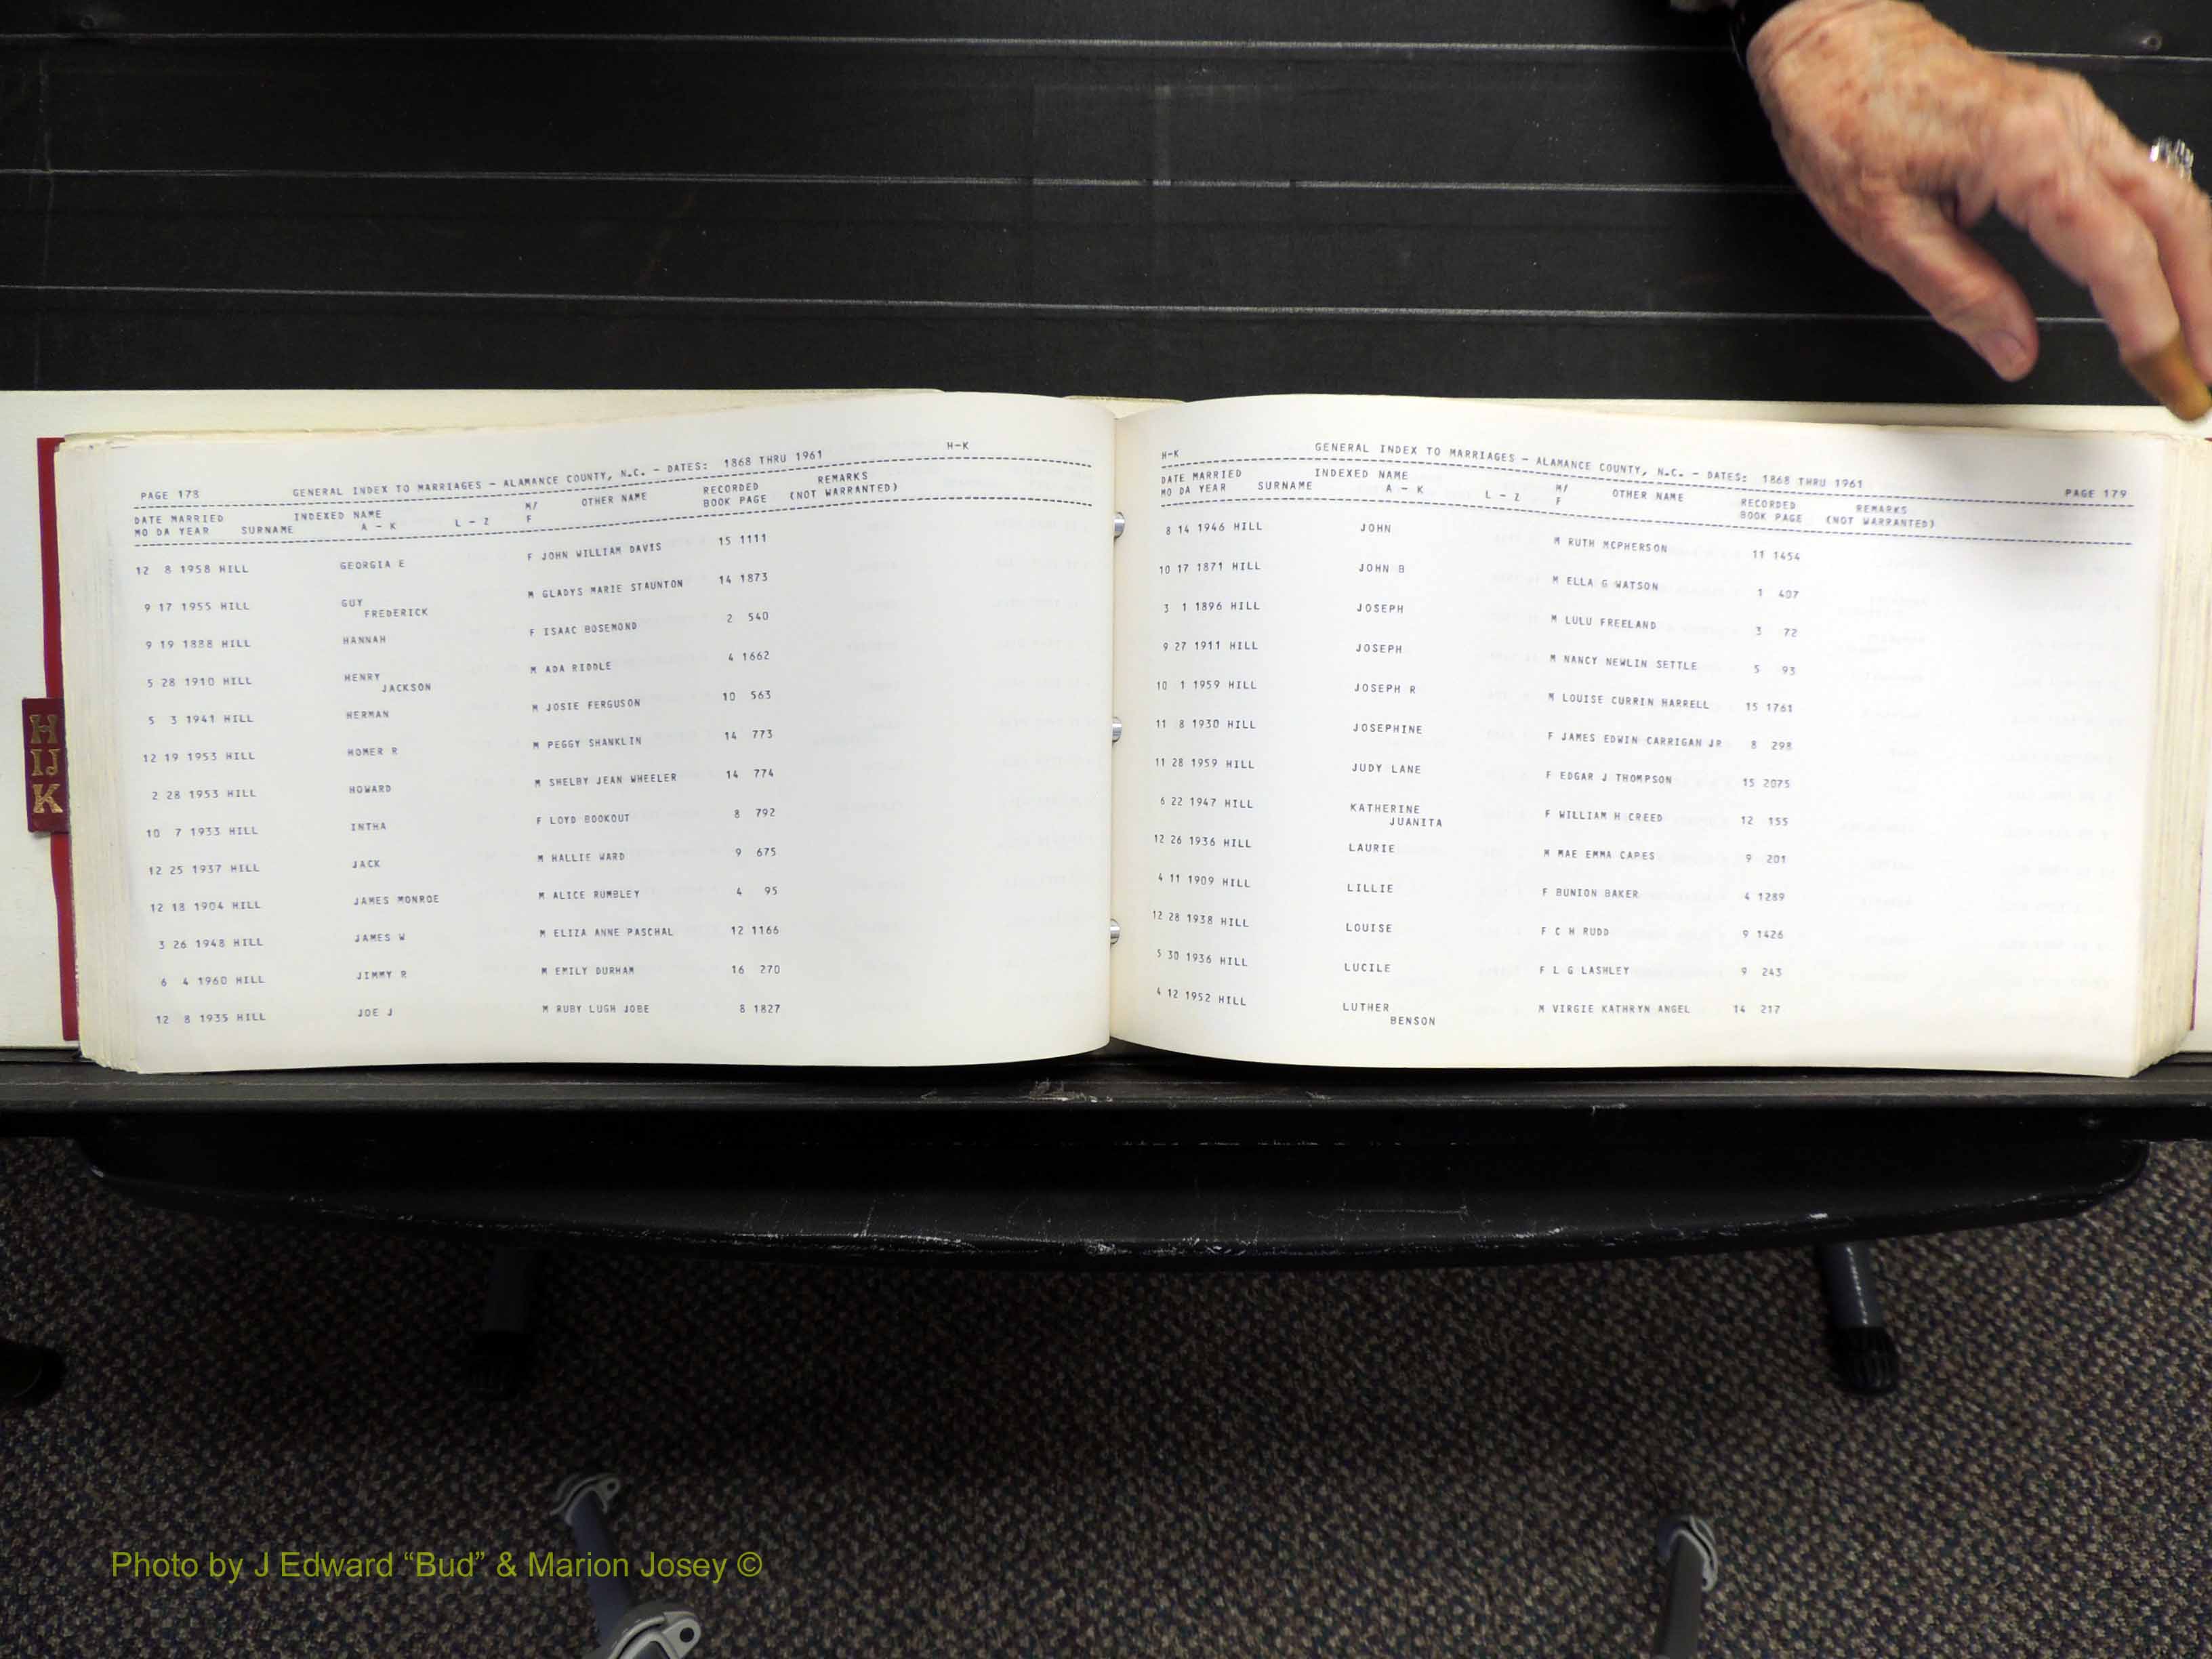 H-K
PAGE 178 GENERAL INDEX TO MARRIAGES - ALAMANCE COUNTY, N.C. - DATES: 1868 THRU 1961
DATE MARRIED INDEXED NAME M/ OTHER NAME RECORDED REMARKS
MO DA YEAR SURNAME A - K L - Z F BOOK PAGE (NOT WARRANTED)
12 8 1958 HILL GEORGIA E F JOHN WILLIAM DAVIS 15 1111
9 17 1955 HILL GUY M GLADYS MARIE STAUNTON 14 1873
FREDERICK
9 19 1888 HILL HANNAH F ISAAC BOSEMOND 2 540
5 28 1910 HILL HENRY M ADA RIDDLE 4 1662
JACKSON
5 3 1941 HILL HERMAN M JOSIE FERGUSON 10 563
12 19 1953 HILL HOMER R M PEGGY SHANKLIN 14 773
2 28 1953 HILL HOWARD M SHELBY JEAN WHEELER 14 774
10 7 1933 HILL INTHA F LOYD BOOKOUT 8 792
12 25 1937 HILL JACK M HALLIE WARD 9 675
12 18 1904 HILL JAMES MONROE M ALICE RUMBLEY 4 95
3 26 1948 HILL JAMES W M ELIZA ANNE PASCHAL 12 1166
6 4 1960 HILL JIMMY R M EMILY DURHAM 16 270
12 8 1935 HILL JOE J M RUBY LUGH JOBE 8 1827
H-K GENERAL INDEX TO MARRIAGES - ALAMANCE COUNTY, N.C. - DATES: 1868 THRU 1961 PAGE 179
DATE MARRIED INDEXED NAME M/ OTHER NAME RECORDED REMARKS
MO DA YEAR SURNAME A - K L - Z F BOOK PAGE (NOT WARRANTED)
8 14 1946 HILL JOHN M RUTH MCPHERSON 11 1454
10 17 1871 HILL JOHN B M ELLA G WATSON 1 407
3 1 1896 HILL JOSEPH M LULU FREELAND 3 72
9 27 1911 HILL JOSEPH M NANCY NEWLIN SETTLE 5 93
10 1 1959 HILL JOSEPH R M LOUISE CURRIN HARRELL 15 1761
11 8 1930 HILL JOSEPHINE F JAMES EDWIN CARRIGAN JR 8 298
11 28 1959 HILL JUDY LANE F EDGAR J THOMPSON 15 2075
6 22 1947 HILL KATHERINE F WILLIAM H CREED 12 155
JUANITA
12 26 1936 HILL LAURIE M MAE EMMA CAPES 9 201
4 11 1909 HILL LILLIE F BUNION BAKER 4 1289
12 28 1938 HILL LOUISE F C H RUDD 9 1426
5 30 1936 HILL LUCILE F L G LASHLEY 9 243
4 12 1952 HILL LUTHER M VIRGIE KATHRYN ANGEL 14 217
BENSON
H
IJ
K
Photo by J Edward “Bud” & Marion Josey ©